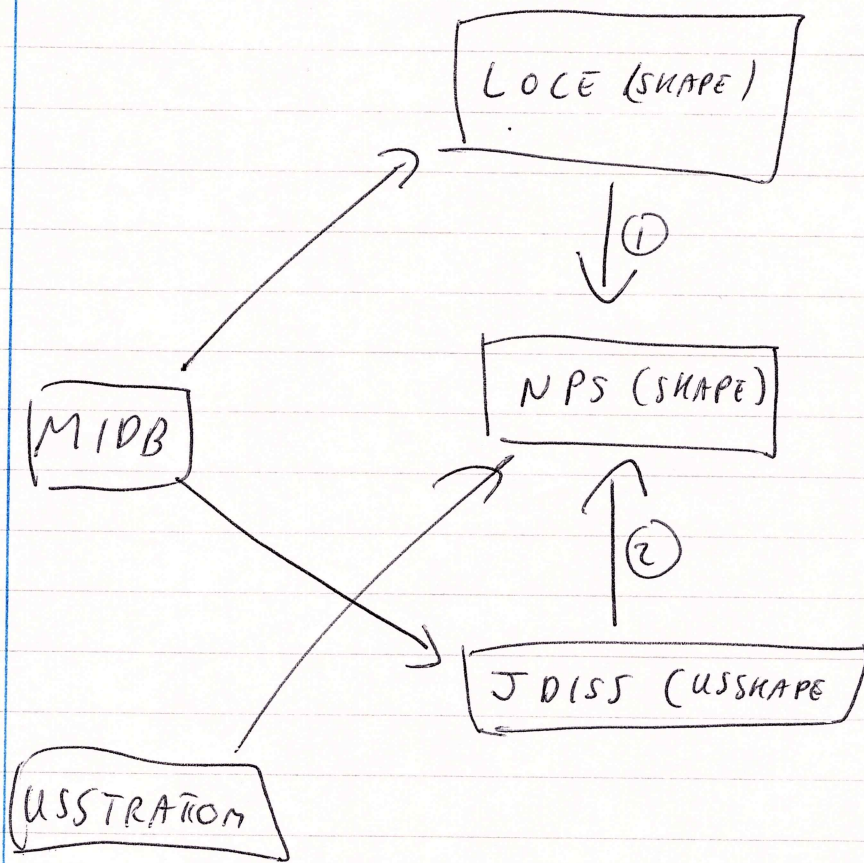 LOCE (SHAPE)
①
NPS (SHAPE)
MIDB
②
JDISS (USSHAPE
USSTRATCOM